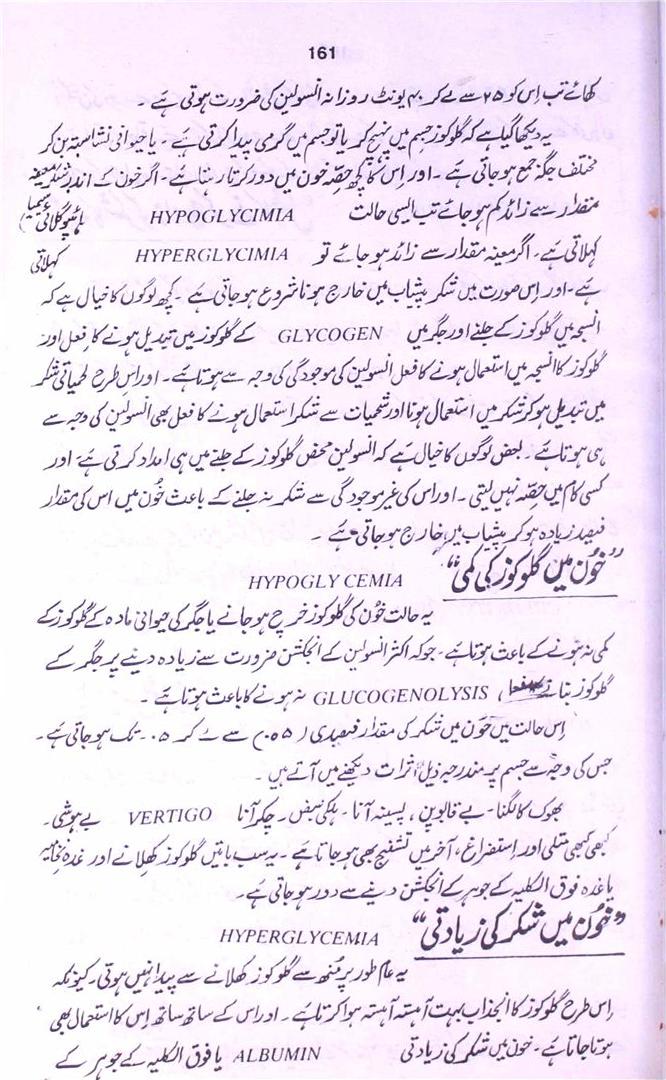 161
کھائے تب اِس کو ۲۵ سے لے کر ۴۰ یونٹ روزانہ انسولین کی ضرورت ہوتی ہے ۔
یہ دیکھا گیا ہے کہ گلوکوز جسم میں پہنچ کر یا تو جسم میں گرمی پیدا کرتی ہے ۔ یا حیوانی نشاستہ بن کر
مختلف جگہ جمع ہو جاتی ہے ۔ اور اِس کا کچھ حِصّہ خون میں دور کرتا رہتا ہے ۔ اگر خون کے اندر شکر معینہ
مقدار سے زائد کم ہو جائے تب ایسی حالت HYPOGLYCIMIA ہائپوگلائی سیمیا
کہلاتی ہے ۔ اگر معینہ مقدار سے زائد ہو جائے تو HYPERGLYCIMIA کہلاتی
ہے ۔ اور اِس صورت میں شکر پیشاب میں خارج ہونا شروع ہو جاتی ہے ۔ کچھ لوگوں کا خیال ہے کہ
انسجہ میں گلوکوز کے جلنے اور جگر میں GLYCOGEN کے گلوکوز میں تبدیل ہونے کا فعل اور
گلوکوز کا انسجہ میں استعمال ہونے کا فعل انسولین کی موجودگی کی وجہ سے ہوتا ہے ۔ اور اس طرح لحمیاتی شکر
میں تبدیل ہو کر شکر میں استعمال ہونا اور شحمیات سے شکر استعمال ہونے کا فعل بھی انسولین کی وجہ سے
ہی ہوتا ہے ۔ بعض لوگوں کا خیال ہے کہ انسولین محض گلوکوز کے جلنے میں ہی امداد کرتی ہے اور
کسی کام میں حِصّہ نہیں لیتی ۔ اور اس کی غیر موجودگی سے شکر نہ جلنے کے باعث خُون میں اس کی مقدار
فیصد زیادہ ہو کر پیشاب میں خارج ہو جاتی ہے ۔
”خُون میں گلوکوز کی کمی“ HYPOGLY CEMIA
یہ حالت خُون کی گلوکوز خرچ ہو جانے یا جگر کی حیوانی مادہ کے گلوکوز کے
کمی نہ ہونے کے باعث ہوتا ہے ۔ جو کہ اکثر انسولین کے انجکشن ضرورت سے زیادہ دینے پر جگر کے
گلوکوز بنانے GLUCOGENOLYSIS نہ ہونے کا باعث ہوتا ہے ۔
اِس حالت میں خُون میں شکر کی مقدار فیصدی (۰۵۵) سے لے کر ۰۵ تک ہو جاتی ہے ۔
جس کی وجہ سے جسم پر مندرجہ ذیل اثرات دیکھنے میں آتے ہیں ۔
بھوک کا لگنا ۔ بے قابو پن ، پسینہ آنا ۔ ہلکی نبض ۔ چکر آنا VERTIGO بے ہوشی ۔
کبھی کبھی متلی اور اِستفراغ ، آخر میں تشنج بھی ہو جاتا ہے ۔ یہ سب باتیں گلوکوز کھلانے اور غدہ نخامیہ
یا غدہ فوق الکلیہ کے جوہر کے انجکشن دینے سے دور ہو جاتی ہے ۔
”خُون میں شکر کی زیادتی“ HYPERGLYCEMIA
یہ عام طور پر مُنھ سے گلوکوز کھلانے سے پیدا نہیں ہوتی ۔ کیونکہ
اِس طرح گلوکوز کا انجذاب بہت آہستہ آہستہ ہوا کرتا ہے ۔ اور اس کے ساتھ ساتھ اِس کا استعمال بھی
ہوتا جاتا ہے ۔ خون میں شکر کی زیادتی ALBUMIN یا فوق الکلیہ کے جوہر کے